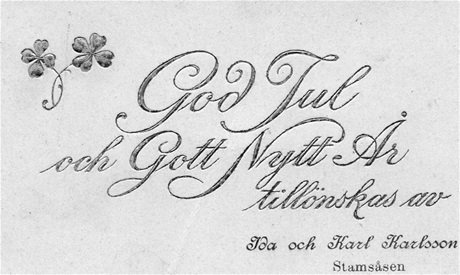 God Jul
och Gott Nytt År
tillönskas av
Ida och Karl Karlsson
Stamsåsen